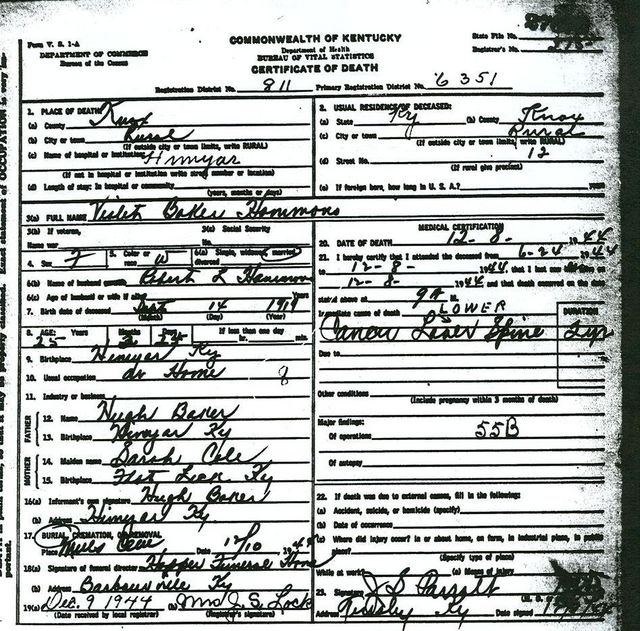 Form V. S. 1-A
DEPARTMENT OF COMMERCE
Bureau of the Census
COMMONWEALTH OF KENTUCKY
Department of Health
BUREAU OF VITAL STATISTICS
CERTIFICATE OF DEATH
State File No.
Registrar's No.
Registration District No. 811 Primary Registration District No. 6351
1. PLACE OF DEATH
(a) County Knox
(b) City or town Rural
(If outside city or town limits, write RURAL)
(c) Name of hospital or institution Himyar
(If not in hospital or institution write street number or location)
(d) Length of stay: In hospital or community
(years, months or days)
2. USUAL RESIDENCE OF DECEASED:
(a) State Ky (b) County Knox
(c) City or town Rural
(If outside city or town limits, write RURAL)
(d) Street No. 12
(If rural give precinct)
(e) If foreign born, how long in U. S. A.? years
3(a) FULL NAME Violet Baker Hammons
3(b) If veteran, 3(c) Social Security
Name war No.
4. Sex F 5. Color or race W 6(a) Single, widowed, married
6(b) Name of husband Robert L Hammons
6(c) Age of husband or wife if alive Years
7. Birth date of deceased Sept 14 1919
(Month) (Day) (Year)
8. AGE: Years Months Days If less than one day
25 2 24 hr. min.
9. Birthplace Himyar Ky
10. Usual occupation At Home
11. Industry or business
FATHER
12. Name Hugh Baker
13. Birthplace Himyar Ky
MOTHER
14. Maiden name Sarah Cole
15. Birthplace Flat Lick Ky
16(a) Informant's own signature Hugh Baker
(b) Address Himyar Ky.
17. BURIAL, CREMATION, OR REMOVAL
Place Mills Cem Date 12/10 1944
18(a) Signature of funeral director Hopper Funeral Home
(b) Address Barbourville Ky
19(a) Dec. 9 1944 (b) Mrs J. S. Lock
(Date received by local registrar) (Registrar's signature)
MEDICAL CERTIFICATION
20. DATE OF DEATH 12-8- 1944
21. I hereby certify that I attended the deceased from 6-24 1944
to 12-8- 1944, that I last saw
12-8- 1944 and that death occurred on the date
stated above at 9 A M.
Immediate cause of death LOWER
DURATION
Cancer Lower Spine
Due to
Other conditions
(Include pregnancy within 3 months of death)
Major findings:
Of operations 55B
Of autopsy
22. If death was due to external causes, fill in the following:
(a) Accident, suicide, or homicide (specify)
(b) Date of occurrence
(c) Where did injury occur? in or about home, on farm, in industrial place, in public
place?
(Specify type of place)
While at work? (e) Means of injury
23. Signature J S Parrott
Address Ky Date signed